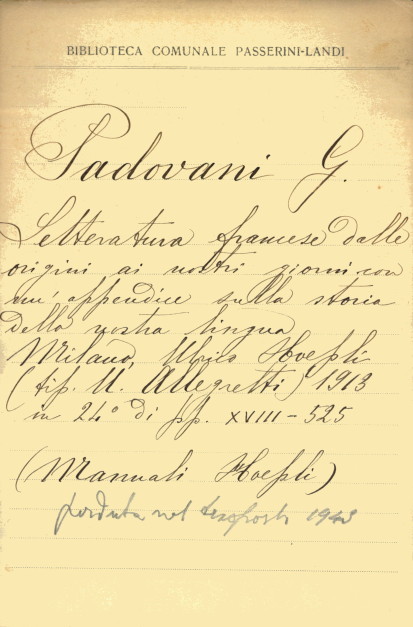 BIBLIOTECA COMUNALE PASSERINI-LANDI
Padovani G.
Letteratura francese dalle
origini ai nostri giorni con
un' appendice sulla storia
della nostra lingua
Milano, Ulrico Hoepli
(tip. U. Allegretti) 1913
in 24° di pp. XVIII - 525
(Manuali Hoepli)
perduta nel 1943